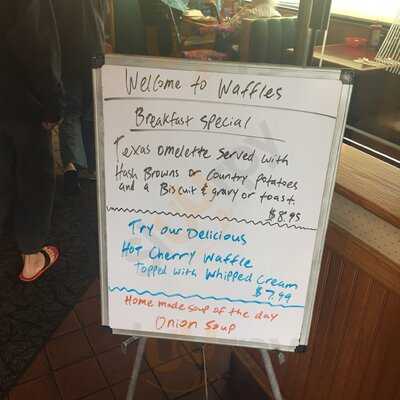 Welcome to Waffles
Breakfast special
Texas omelette served with
Hash Browns or Country Potatoes
and a Biscuit & gravy or toast.
$8.95
Try our Delicious
Hot Cherry Waffle
Topped with Whipped Cream
$7.99
Home made soup of the day
Onion Soup